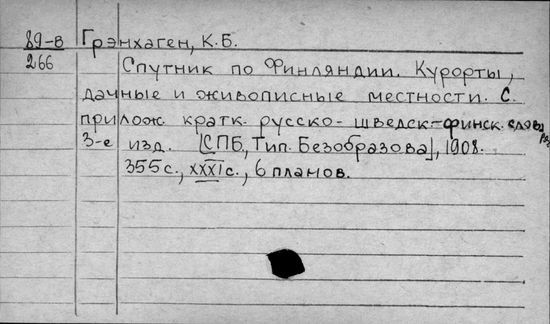 89-в Грэнхаген, К.Б.
266 Спутник по Финляндии. Курорты,
дачные и живописные местности. С.
прилож. кратк. русско-шведск-финск.
3-е изд. [СПБ, Тип. Безобразова], 1908.
355 с., XXXI с., 6 планов.